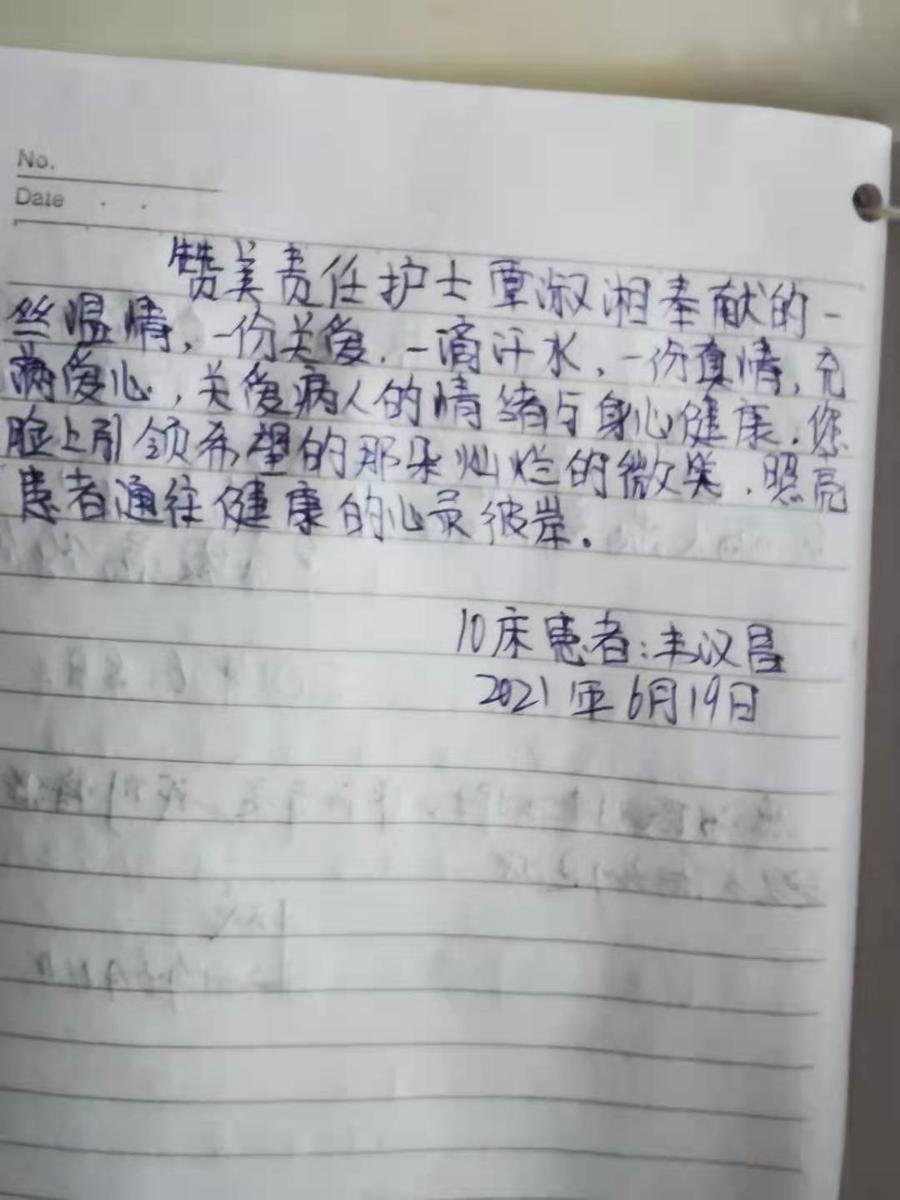 No.
Date
赞美责任护士覃淑湘奉献的一
丝温情,一份关爱,一滴汗水,一份真情,充
满爱心,关爱病人的情绪与身心健康.您
脸上引领希望的那朵灿烂的微笑.照亮
患者通往健康的心灵彼岸.
10床患者:韦汉昌
2021年6月19日